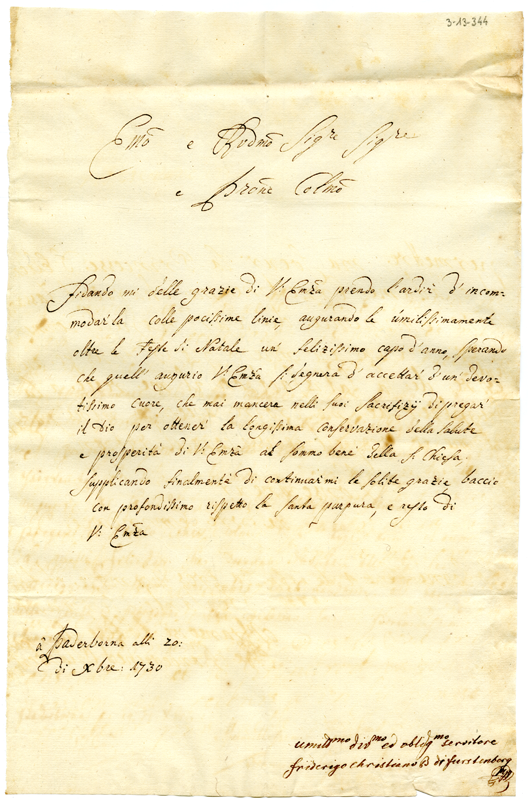 3-13-344
Emo e Rvdmo Sigre Sigre
e Prone Colmo
fidando mi delle grazie di V. Emza prendo l'ardir d'incom=
modar la colle pocissime linie, augurando le úmilissimamente
oltre le Feste di Natale un' felizissimo capo d'anno, sperando
che quest' augurio V. Emza si degnera d'accettar d'un devo-
tissimo cuore, che mai mancera nelli suoi sacrifizij di pregar'
il Dio per ottener' la longissima conservazione della salute
e prosperità di V. Emza al sommo bene della S. Chiesa
supplicando finalmente di continuarmi le solite grazie baccio
con profondissimo rispetto la santa purpura, e resto di
V. Emza
à Paderborna alli 20:
di Xbre: 1730
umilmo divmo ed obligmo servitore
friderigo Christiano B di furstenberg